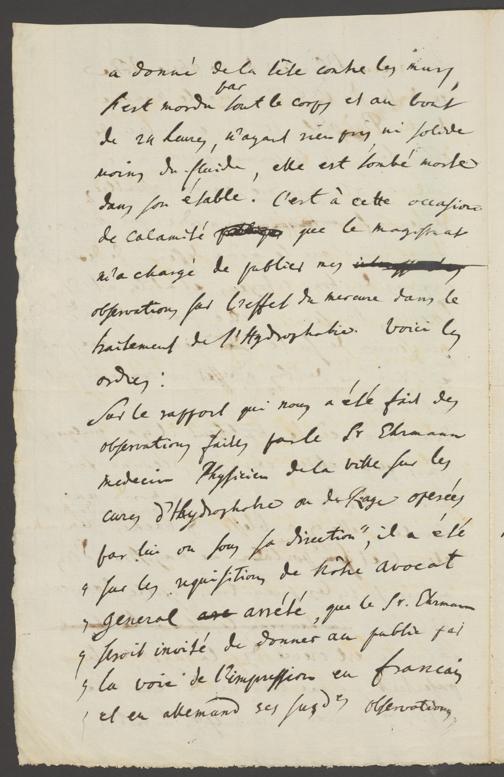 a donné de la tête contre les murs,
s'est mordu par tout le corps et au bout
de 24 heures, n'ayant rien pris ni solide
moins du fluide, elle est tombé morte
dans son étable. C'est à cette occasion
de calamité publique que le magistrat
m'a chargé de publier mes
observations sur l'effet du mercure dans le
traitement de l'Hydrophobie. Voici les
ordres :
Sur le rapport qui nous a été fait des
observations faites par le Sr Ehrmann
medecin Physicien de la ville sur les
cures d'Hydrophobie ou de Rage operées
par lui ou sous sa direction", il a été
" sur les requisitions de Nôtre avocat
" general arrêté, que le Sr. Ehrmann
" seroit invité de donner au public par
" la voie de l'impression en francais
" et en allemand ses susdes observations,